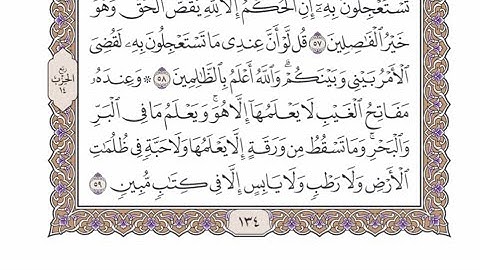 تَسْتَعْجِلُونَ بِهِۦٓۚ إِنِ ٱلْحُكْمُ إِلَّا لِلَّهِۖ يَقُصُّ ٱلْحَقَّۖ وَهُوَ
خَيْرُ ٱلْفَٰصِلِينَ ٥٧ قُل لَّوْ أَنَّ عِندِى مَا تَسْتَعْجِلُونَ بِهِۦ لَقُضِىَ
ٱلْأَمْرُ بَيْنِى وَبَيْنَكُمْۗ وَٱللَّهُ أَعْلَمُ بِٱلظَّٰلِمِينَ ٥٨ ۞ وَعِندَهُۥ
مَفَاتِحُ ٱلْغَيْبِ لَا يَعْلَمُهَآ إِلَّا هُوَۚ وَيَعْلَمُ مَا فِى ٱلْبَرِّ
وَٱلْبَحْرِۚ وَمَا تَسْقُطُ مِن وَرَقَةٍ إِلَّا يَعْلَمُهَا وَلَا حَبَّةٍ فِى ظُلُمَٰتِ
ٱلْأَرْضِ وَلَا رَطْبٍ وَلَا يَابِسٍ إِلَّا فِى كِتَٰبٍ مُّبِينٍ ٥٩
ربع
الحزب
١٤
١٣٤